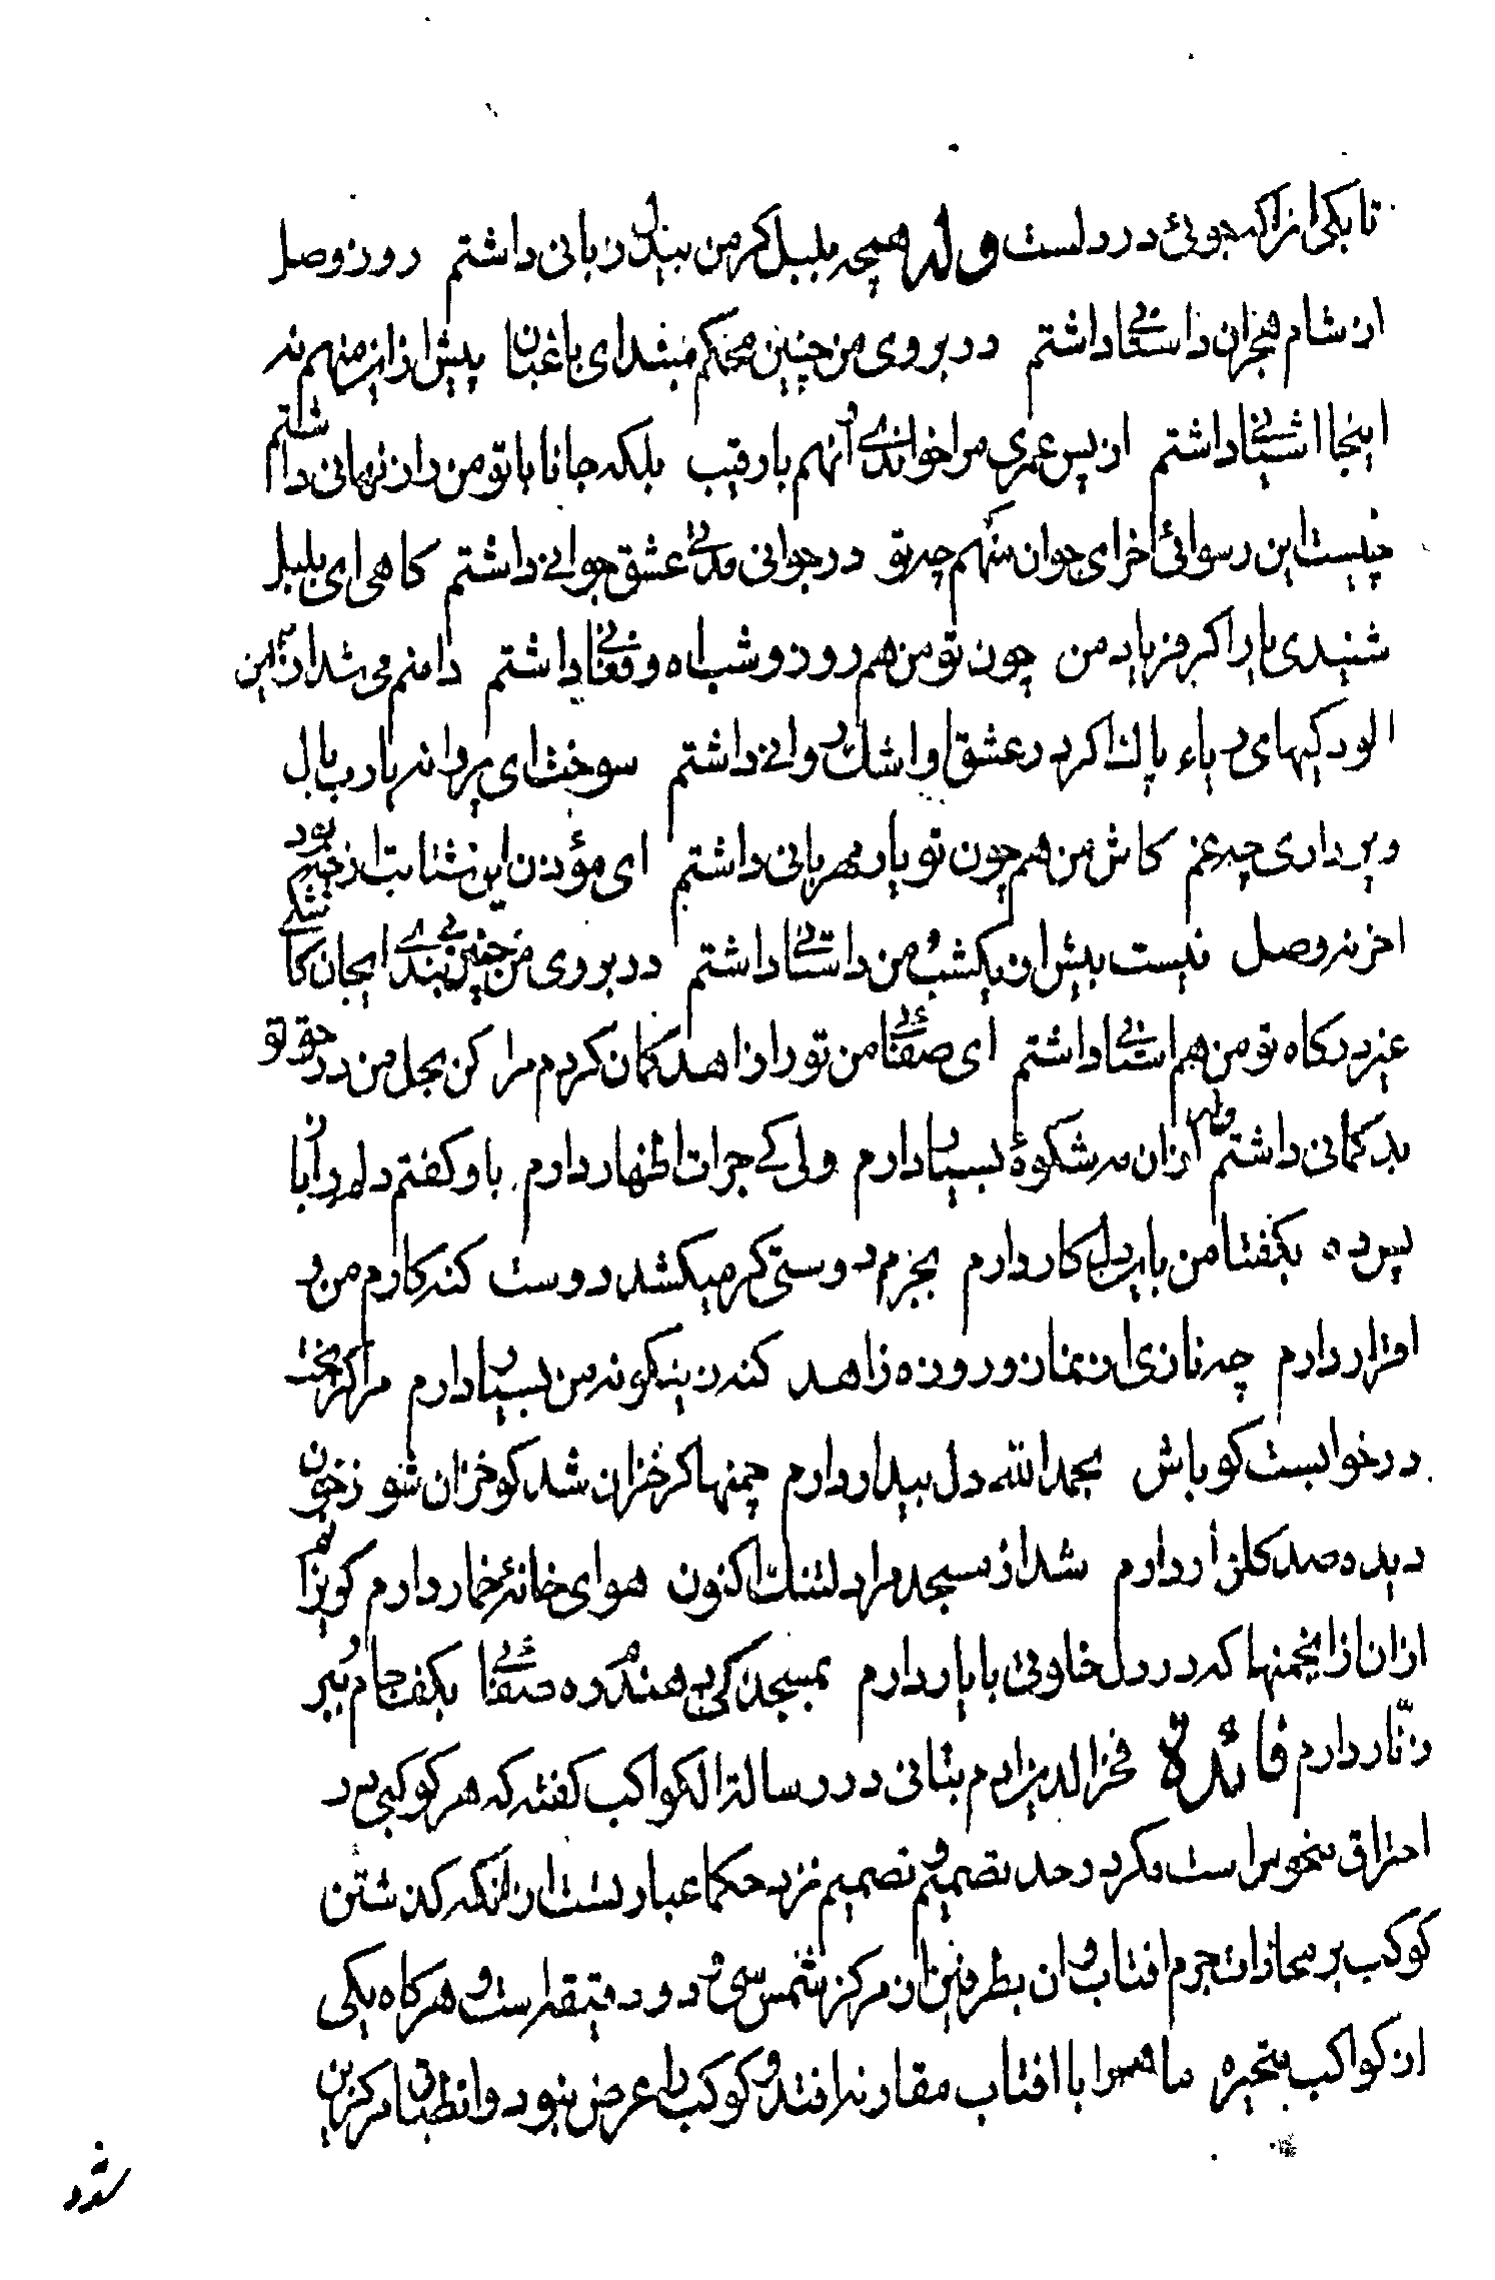 تابکی انرا که جوئی در دلست وله همچه بلبل کر من بیدل زبانی داشتم روز وصل
از شام هجران داستانی داشتم در بروی من چنین محکم مبند ای باغبان پیش ازین منهم نه
اینجا اشیانی داشتم از پس عمری مرا خواندی و آنهم با رقیب بلکه جانا با تو من راز نهانی داشتم
چیست این رسوائی اخر ای جوان منهم چه تو در جوانی مدتی عشق جوانی داشتم کاهی ای بلبل
شنیدی یار اکر فریاد من چون تو من هم روز و شب اه و فغانی داشتم دامنم می شد ازین
الودکیهای ریاء پاک اکر در عشق او اشک روانی داشتم سوخت ای پروانه یارب بال
و پر داری چه غم کاش من هم چون تو یار مهربانی داشتم ای مؤذن این شتابت از چه بود
اخر شب وصل نیست بیش از یکشب و من داستانی داشتم در بروی من چنین بندی ایجان کا
غیر درکاه تو من هم استانی داشتم ای صفائی من تو را زاهد کمان کردم مرا کن بحل من در حق تو
بد کمانی داشتم وله ازان مه شکوهٔ بسیار دارم ولی کی جرات اظهار دارم باو کفتم دلم را باز
پس ده بکفتا من باین دل کار دارم بجرم دوستی کر میکشد دوست کنه کارم من و
اقرار دارم چه نازی از نماز و روزه زاهد کنه زینکونه من بسیار دارم مرا کر بخت
در خوابست کو باش بحمد الله دل بیدار دارم چمنها کر خزان شد کو خزان شو ز خون
دیده صد کلزار دارم شد از مسجد مرا دلتنک اکنون هوای خانهٔ خمار دارم کریزانم
ازان از انجمنها که در دل خلوتی با یار دارم بمسجد کی دهندم ره صفائی بکف جام و ببر
زنّار دارم فائدة فخر الدین ادم بنانی در رسالة الکواکب کفته که هر کوکبی در
احتراق منحوس است مکر در حد تصمیم و تصمیم نزد حکما عبارتست از انکه کذشتن
کوکب بر محاذات جرم افتاب و ان بطرفین از مرکز شمس سی و دو دقیقه است و هرکاه یکی
از کواکب متحیره با افتاب مقارنه افتد و کوکب را عرض نبود و انطباق مرکزین
شود